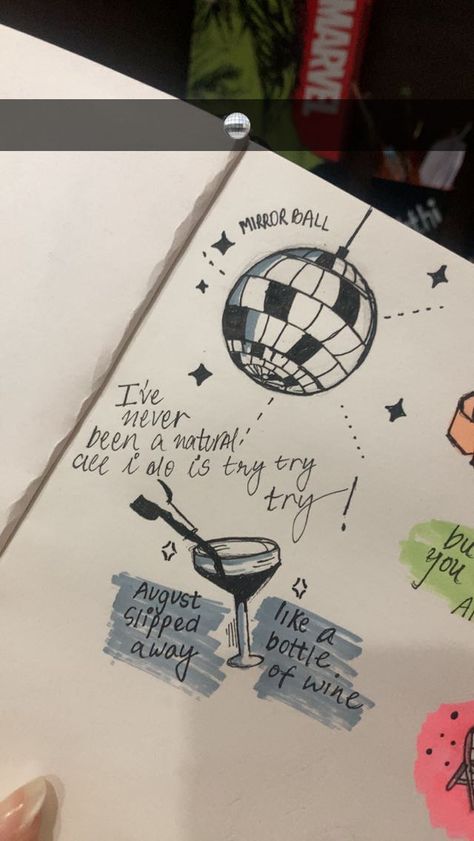 MARVEL
thi
MIRROR BALL
I've
never
been a natural
all i do is try try
try!
August
slipped
away
like a
bottle
of wine
bu
you
Al